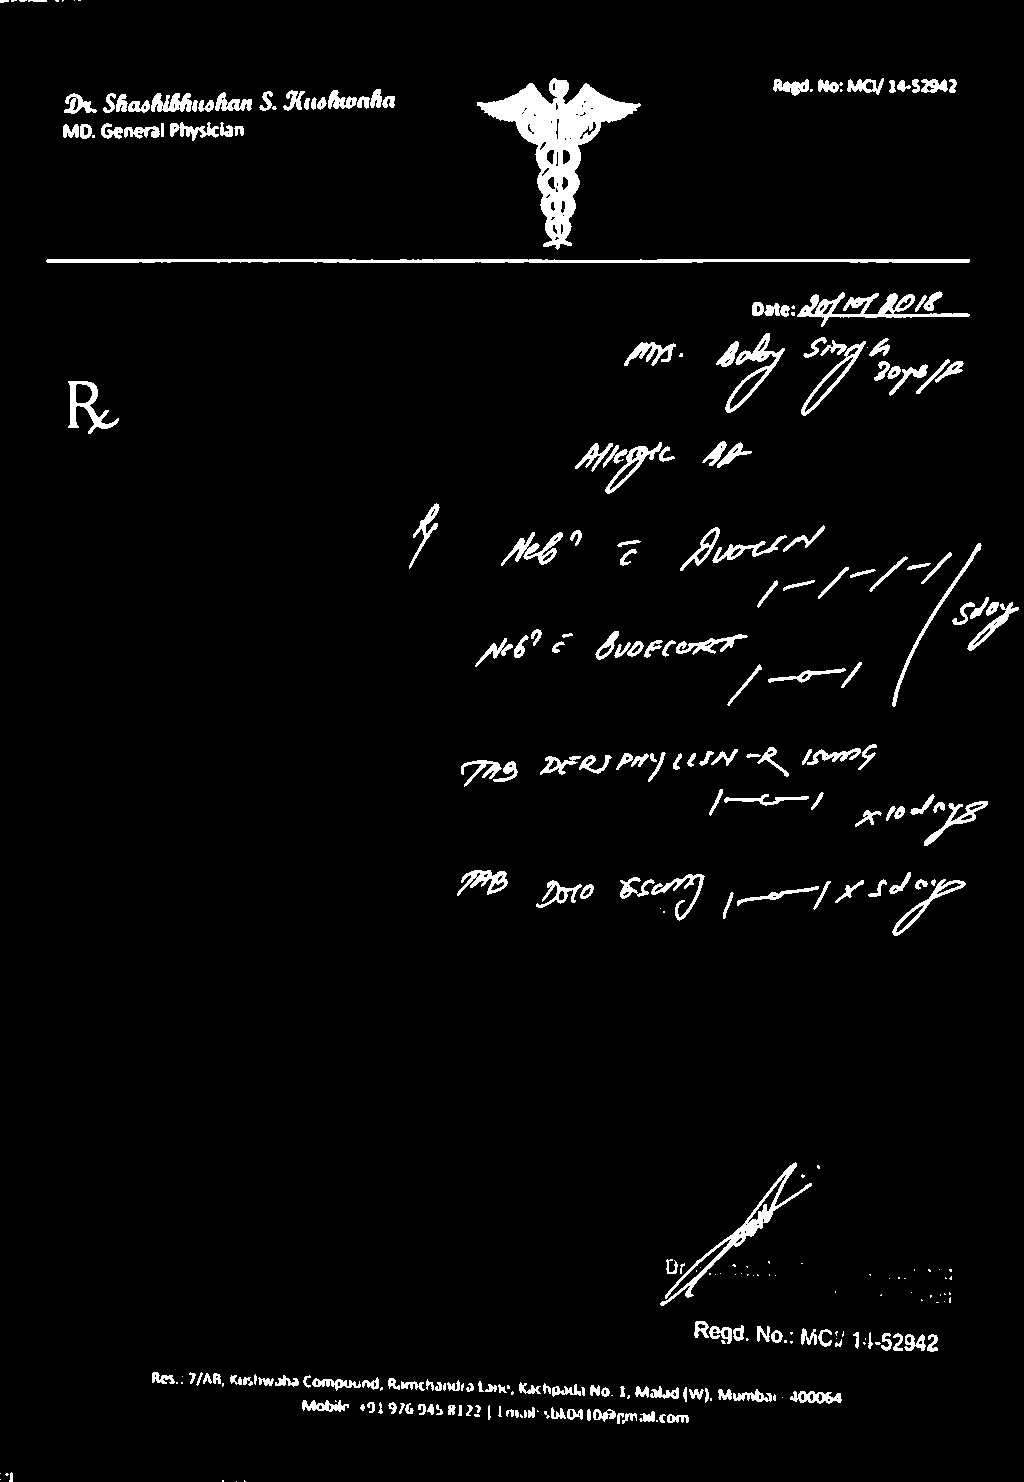 Dr. Shashibhushan S. Kushwaha
MD. General Physician
Regd. No: MCI/ 14-52942
Date: 20/10/2018
Mrs. Baby Singh
30yrs/F
Rx
Allergic BA
Rx Nebn c̄ DUOLIN
1-1-1-1
5day
Nebn c̄ BUDECORT
1-0-1
TAB DERIPHYLLIN-R 150MG
1-0-1
x 10 days
TAB DOLO 650mg 1-0-1 x 5 days
Dr
Regd. No.: MCI/ 14-52942
Res.: 7/AB, Kushwaha Compound, Ramchandra Lane, Kachpada No. 1, Malad (W), Mumbai - 400064
Mobile: +91 976 945 8122 | Email: sbk0410@gmail.com